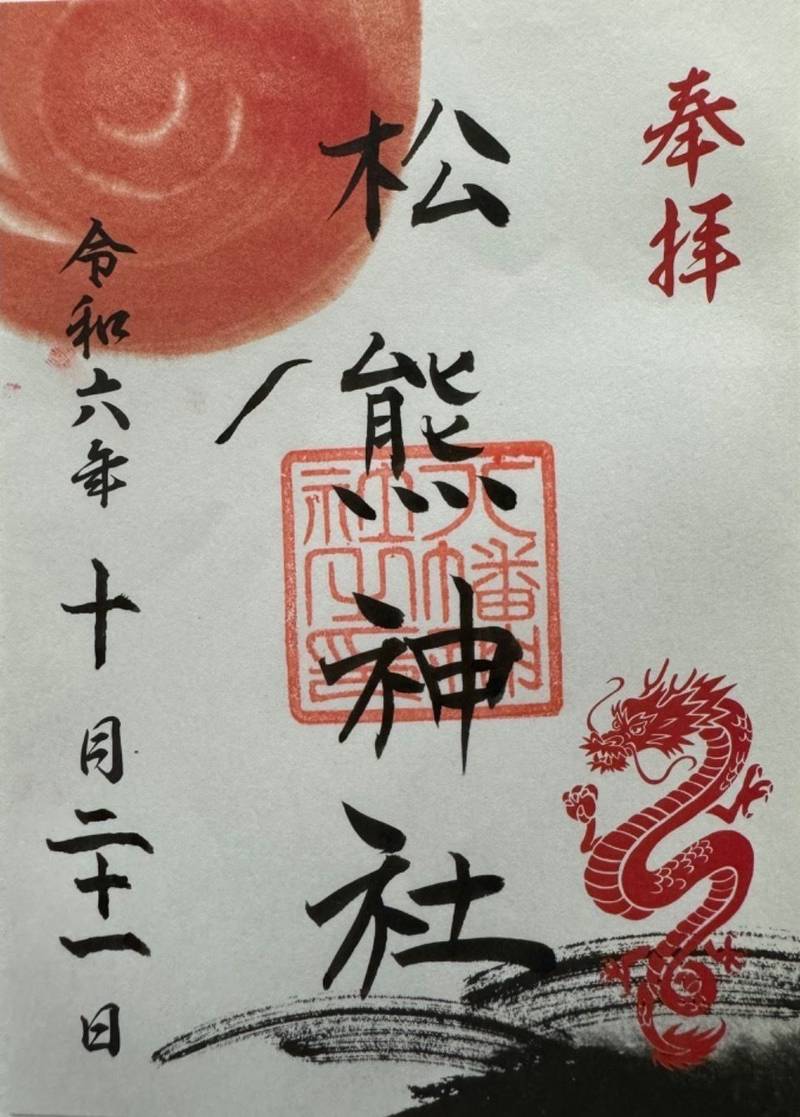 奉拝
松熊神社
八幡神
社之印
令和六年十月二十一日